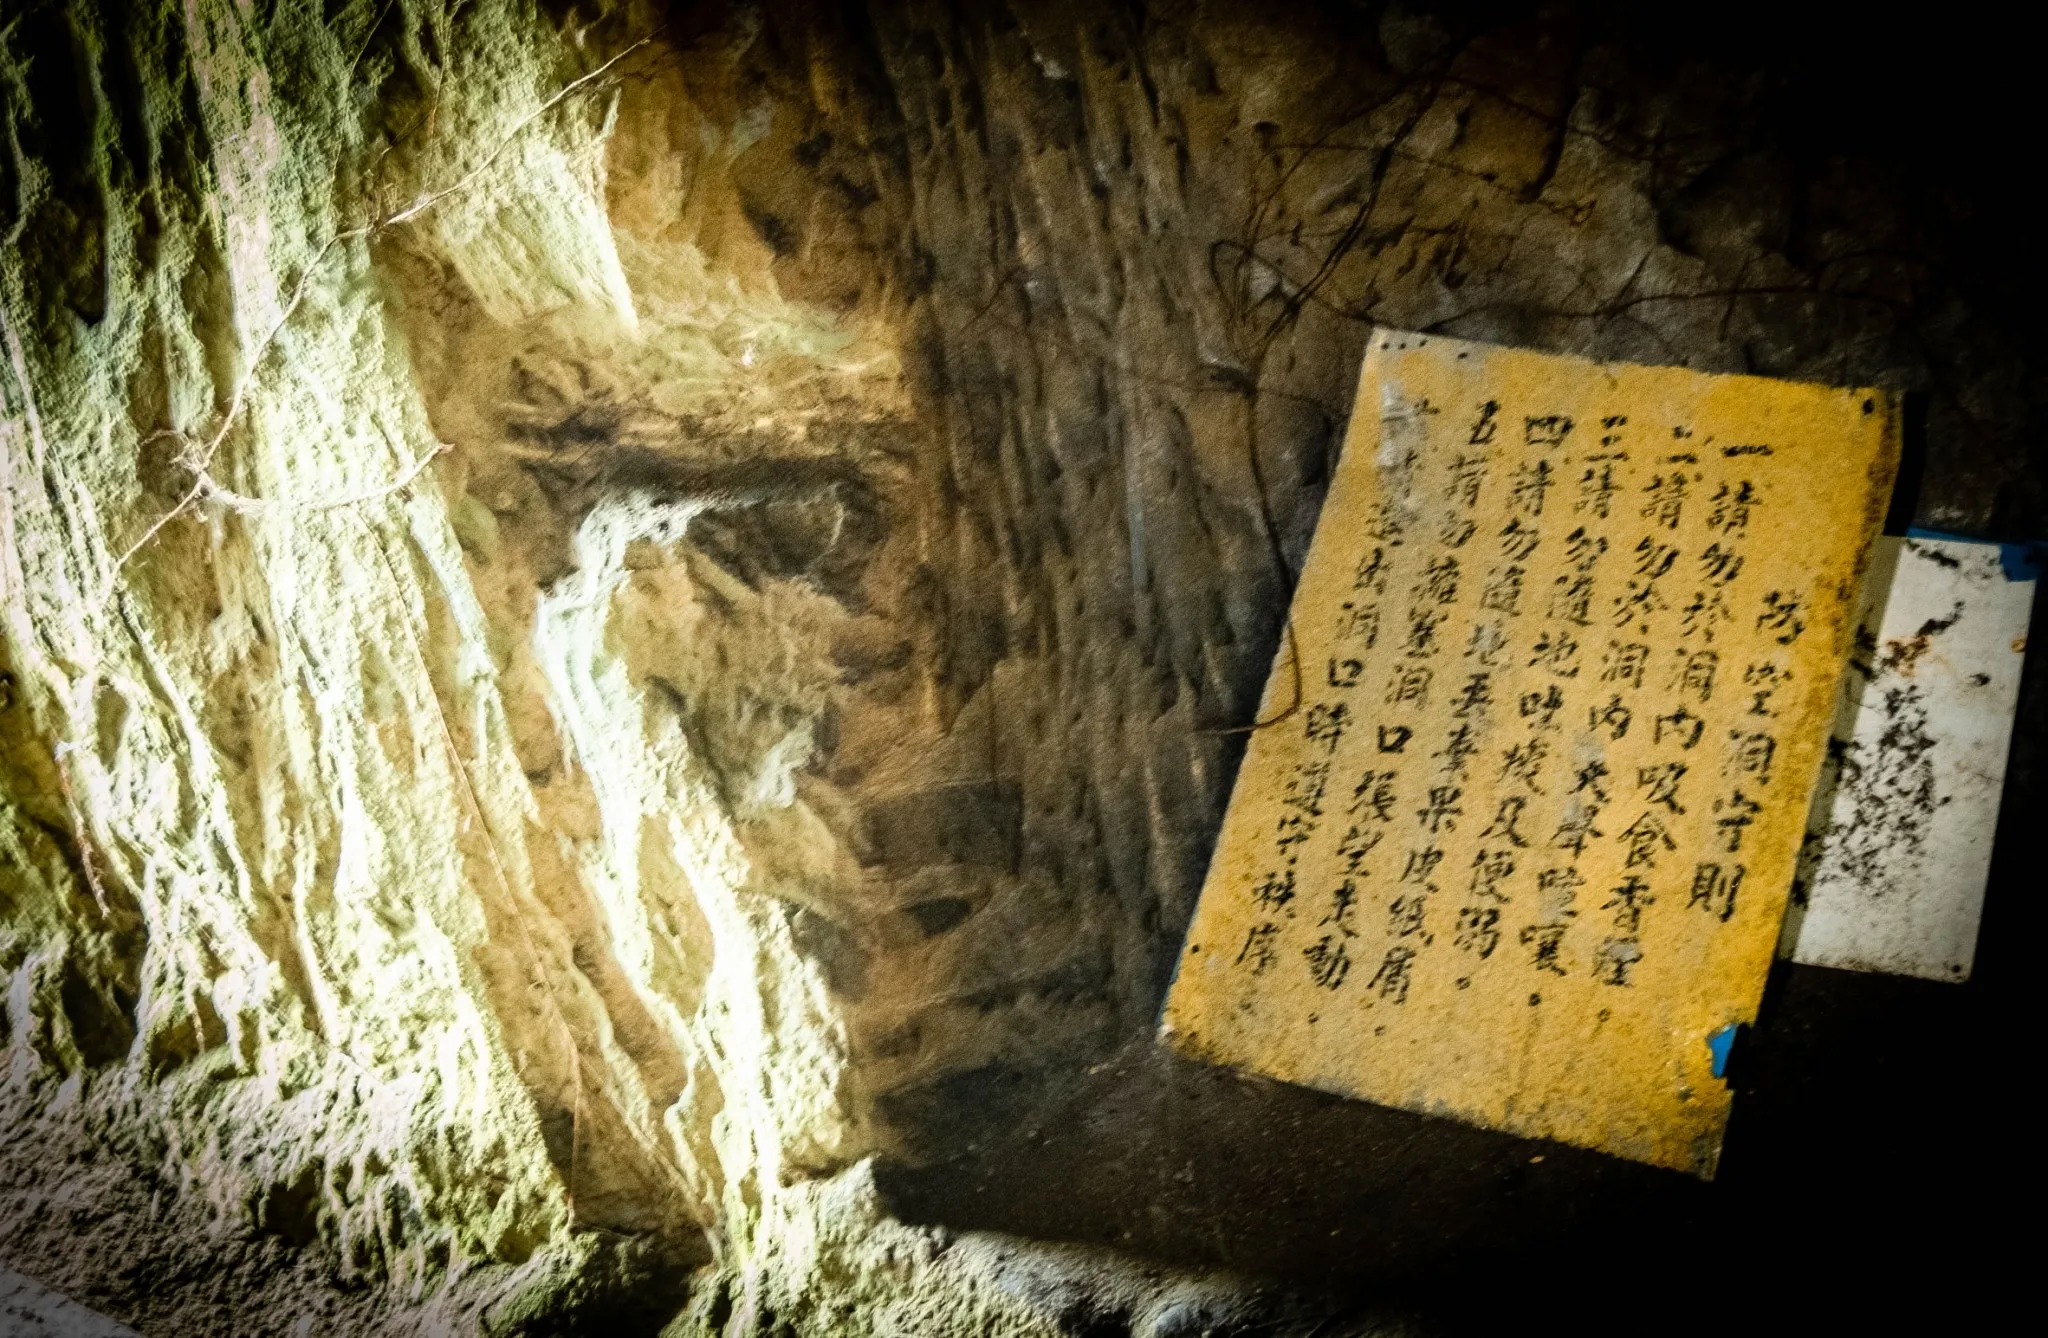 防空洞守則
一請勿於洞內吸食香煙
二請勿於洞內大聲喧嚷。
三請勿隨地吐痰及便溺。
四請勿隨地丟棄果皮紙屑
五請勿擁塞洞口張望走動
進出洞口時遵守秩序